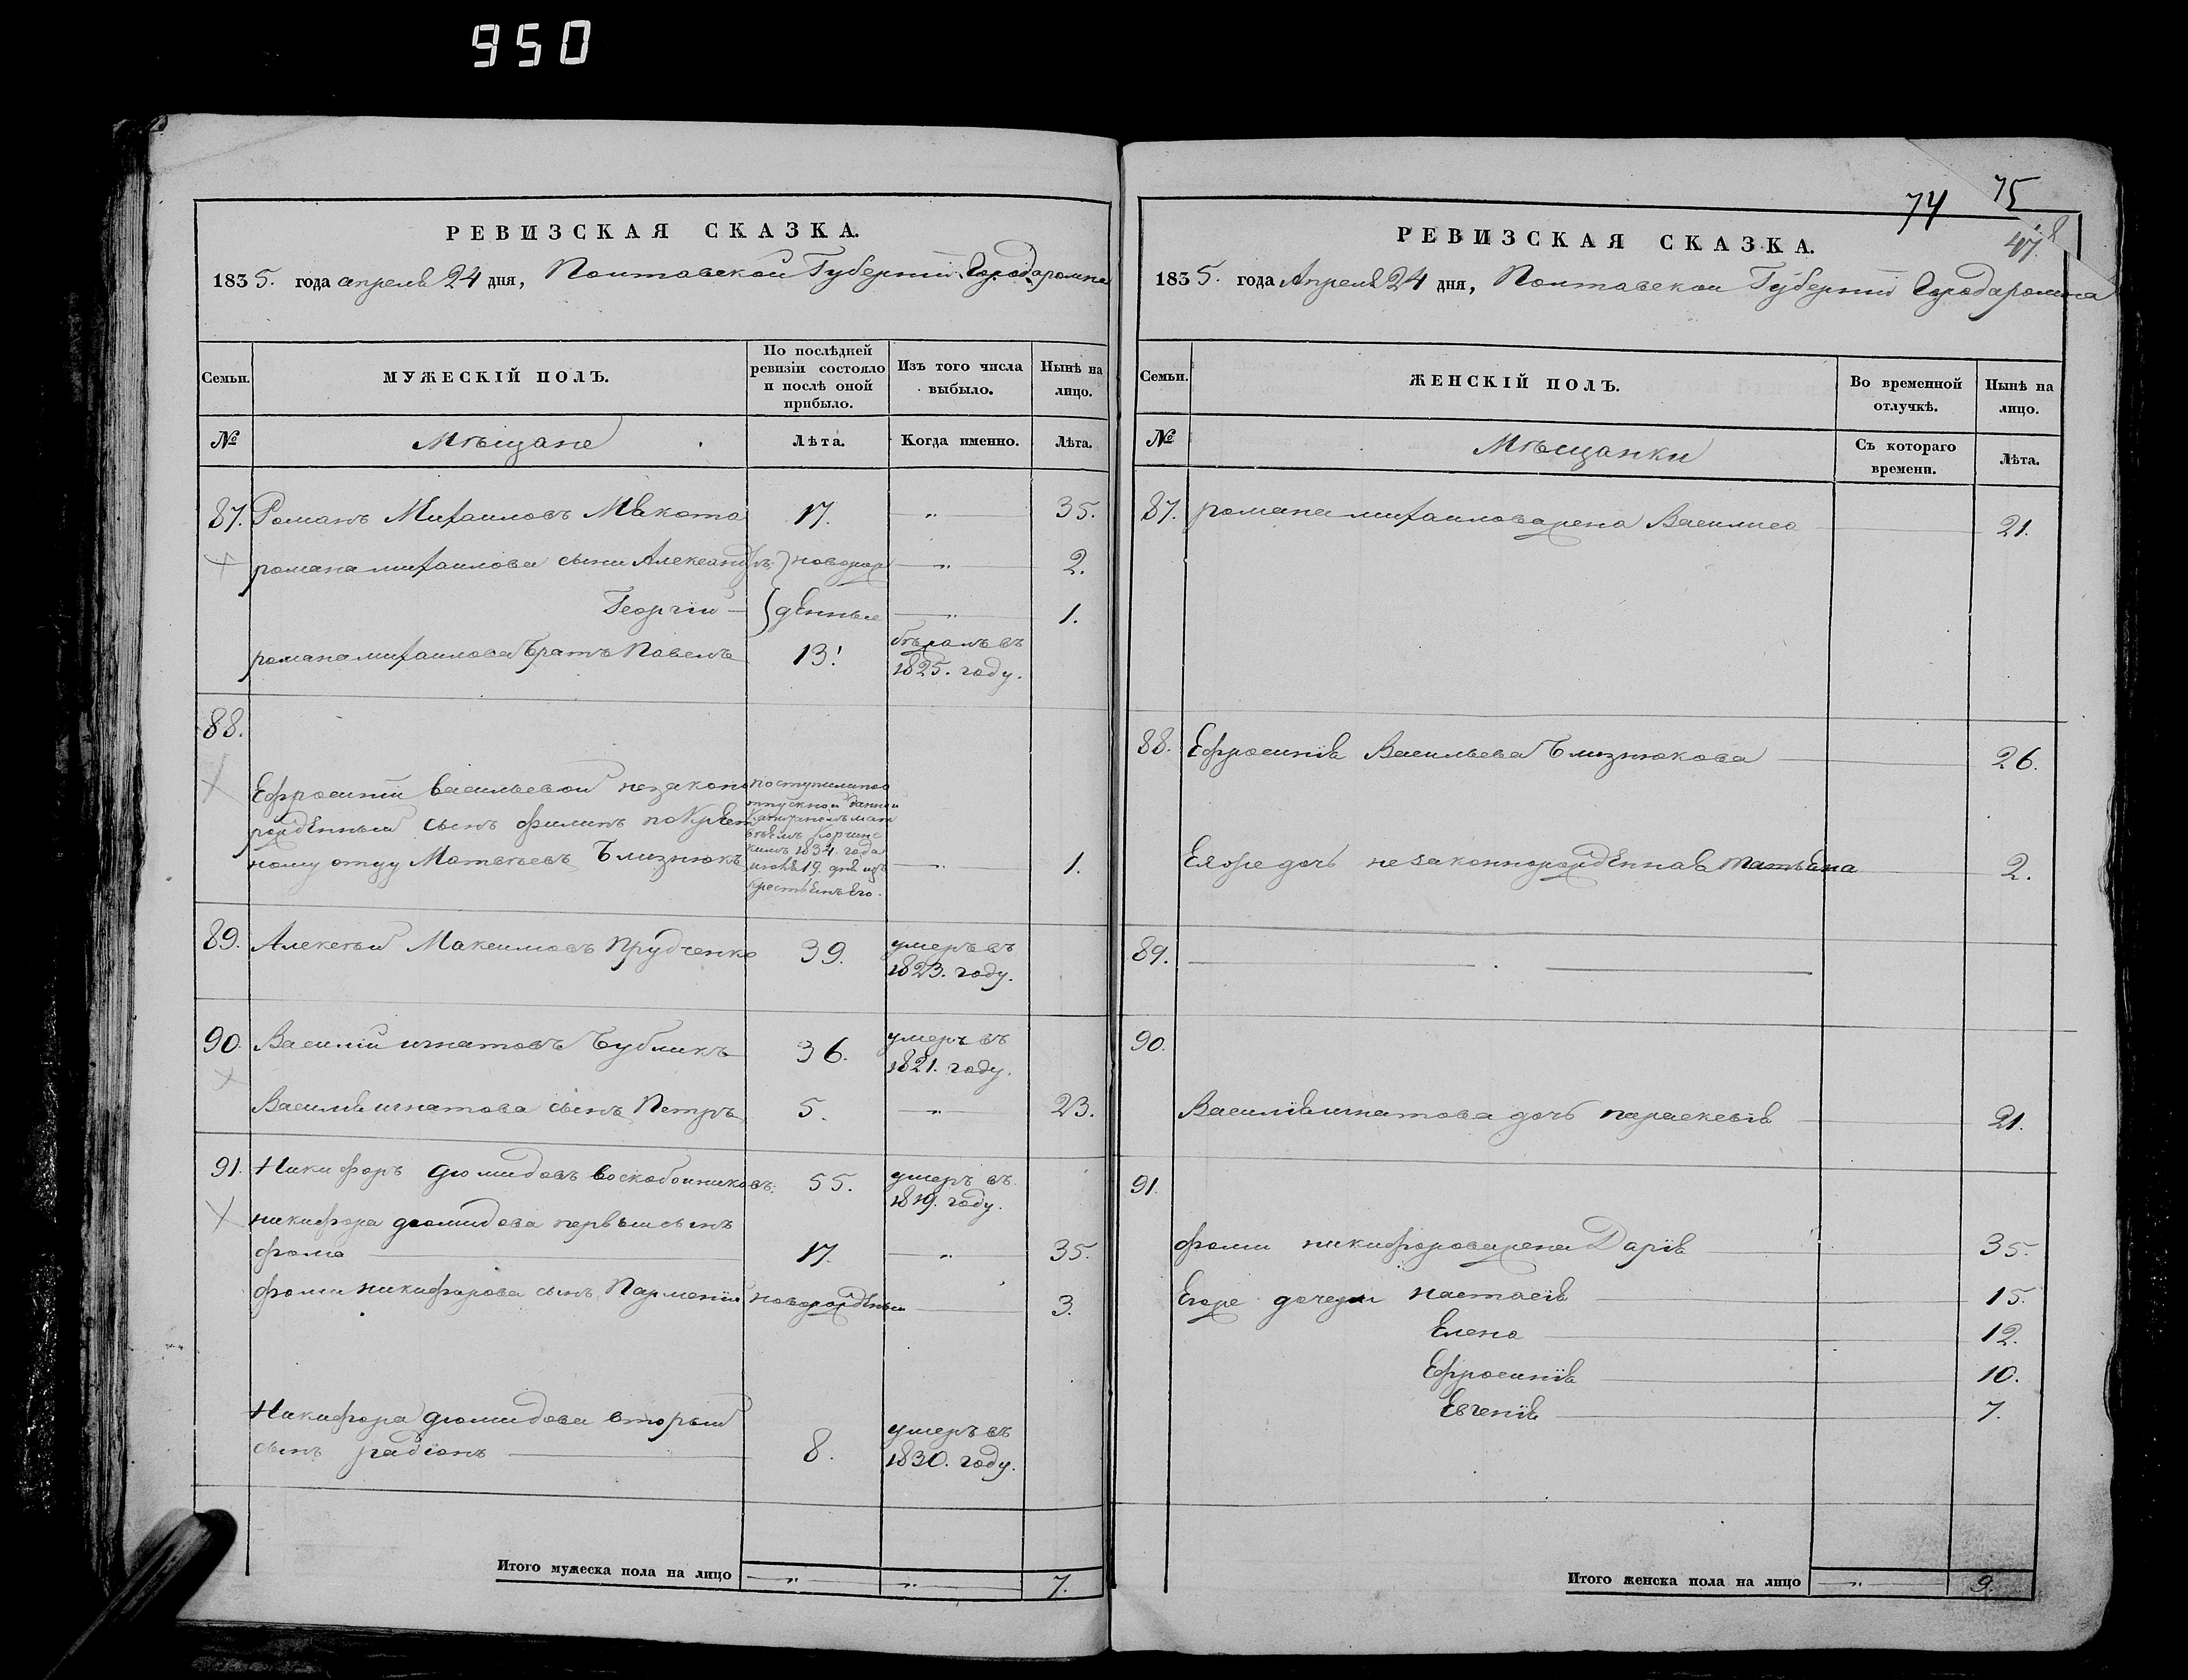 950
РЕВИЗСКАЯ СКАЗКА.
1835. года апреля 24 дня, Полтавской Губернии Города ромна
Семьи.
МУЖЕСКІЙ ПОЛЪ.
По послѣдней ревизіи состояло и послѣ оной прибыло.
Изъ того числа выбыло.
Нынѣ на лицо.
№
Мѣщане
Лѣта.
Когда именно.
Лѣта.
87. Романъ Михаиловъ Макота 17. " 35.
романа михаилова сыни Александръ } новорож " 2.
Георгій } денные " 1.
романа михаилова братъ Павелъ 13. бѣжалъ въ
1825. году.
88.
Ефросиніи васильевой незаконо
рожденный сынъ филипъ по крест
ному отцу Матвѣевъ Близнюкъ " 1.
поступили по
отпускной данной
1834. года
89. Алексѣй Максимовъ Прудченко 39. умеръ въ
1823. году.
90. Василій игнатовъ Бубликъ 36. умеръ въ
1821. году.
Василія игнатова сынъ Петръ 5. " 23.
91. Никифоръ дюмидовъ воскобоиниковъ. 55. умеръ въ
1819. году.
никифора дюмидова первыи сынъ
фома 17. " 35.
фоми никифорова сынъ Парменій новорожденый 3.
Никифора дюмидова вторый
сынъ радіонъ 8. умеръ въ
1830. году.
Итого мужеска пола на лицо " " 7.
74 75
47.
РЕВИЗСКАЯ СКАЗКА.
1835. года Апреля 24 дня, Полтавской Губерніи Города ромна
Семьи.
ЖЕНСКІЙ ПОЛЪ.
Во временной отлучкѣ.
Нынѣ на лицо.
№
Мѣщанки
Съ котораго времени.
Лѣта.
87. романа михаилова жена Василиса 21.
88. Ефросинія Васильева Близнюкова 26.
Ея же дочь незаконнорожденная татьяна 2.
89.
90.
Василія игнатова дочь параскевія 21.
91.
фоми никифорова жена Дарія 35.
Его же дочери настасія 15.
Елена 12.
Ефросинія 10.
Евгенія 7.
Итого женска пола на лицо " 9.